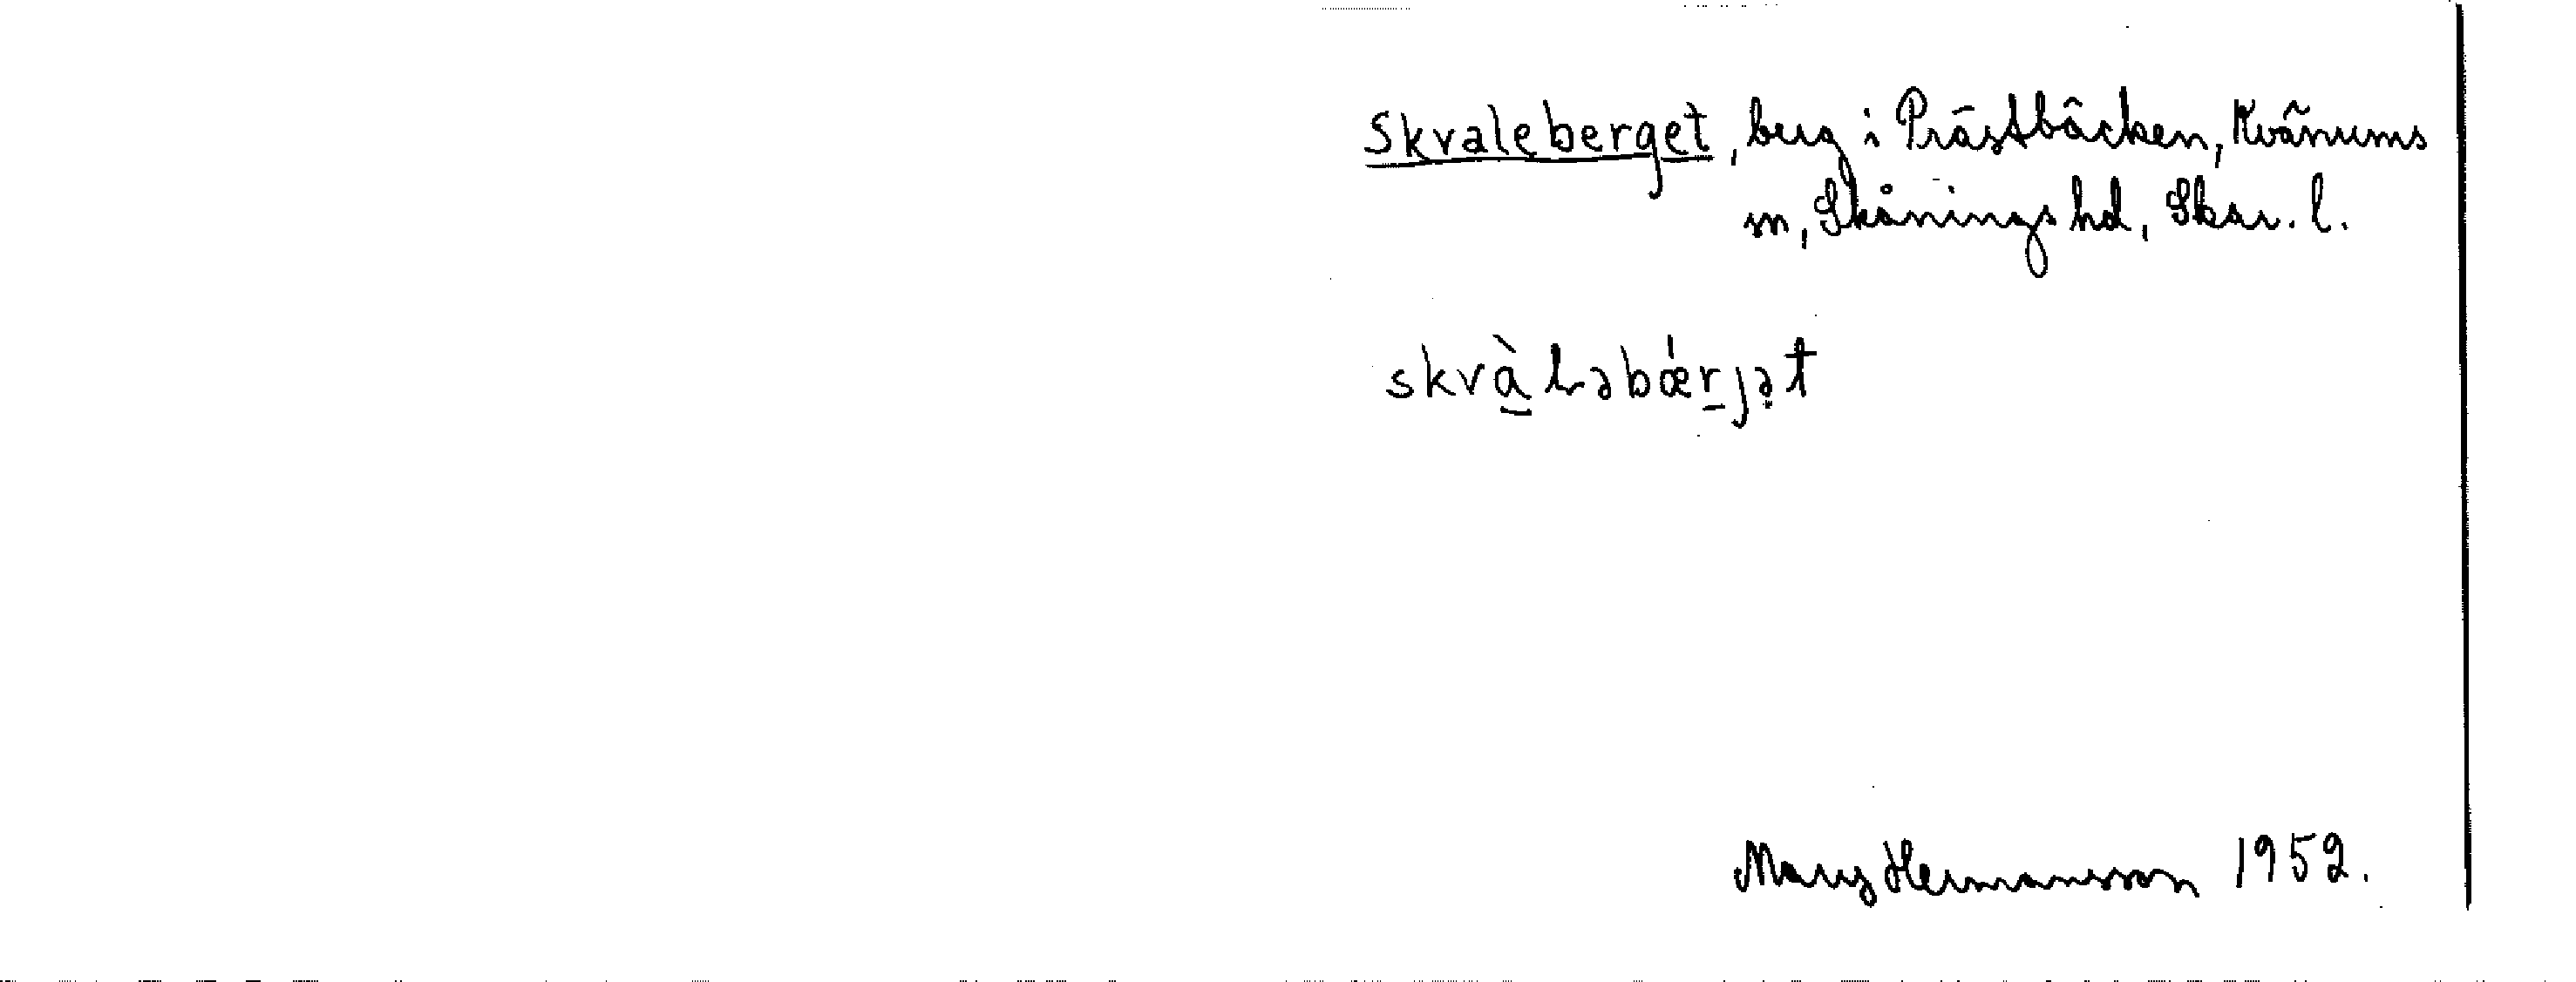 Skvaleberget, berg i Prästbäcken, Kvänums
sn, Skånings hd, Skar. l.
skvà̠ɬəbǽr̠jə̣t
Mary Hermansson 1952.